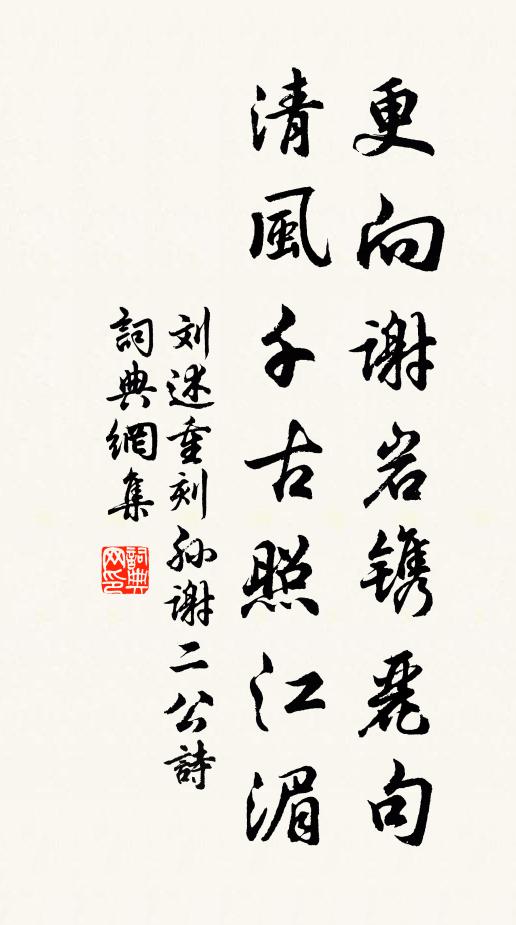 更向谢岩镌麗句
清風千古照江湄
刘述重刻孙谢二公詩
詞典網集
詞典网印